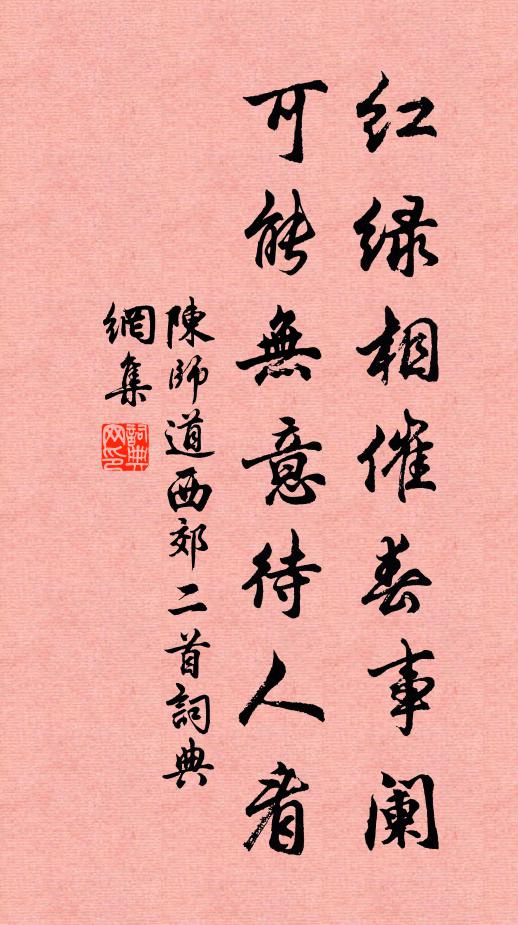 红绿相催春事阑
可能無意待人看
陳師道西郊二首詞典
網集
詞典網印